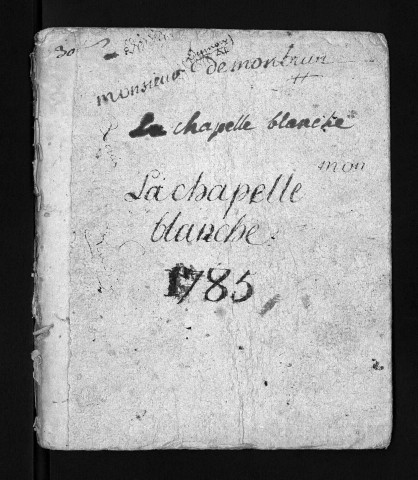 30
monsieur de montrun
La chapelle blanche
mon
La chapelle
blanche
1785